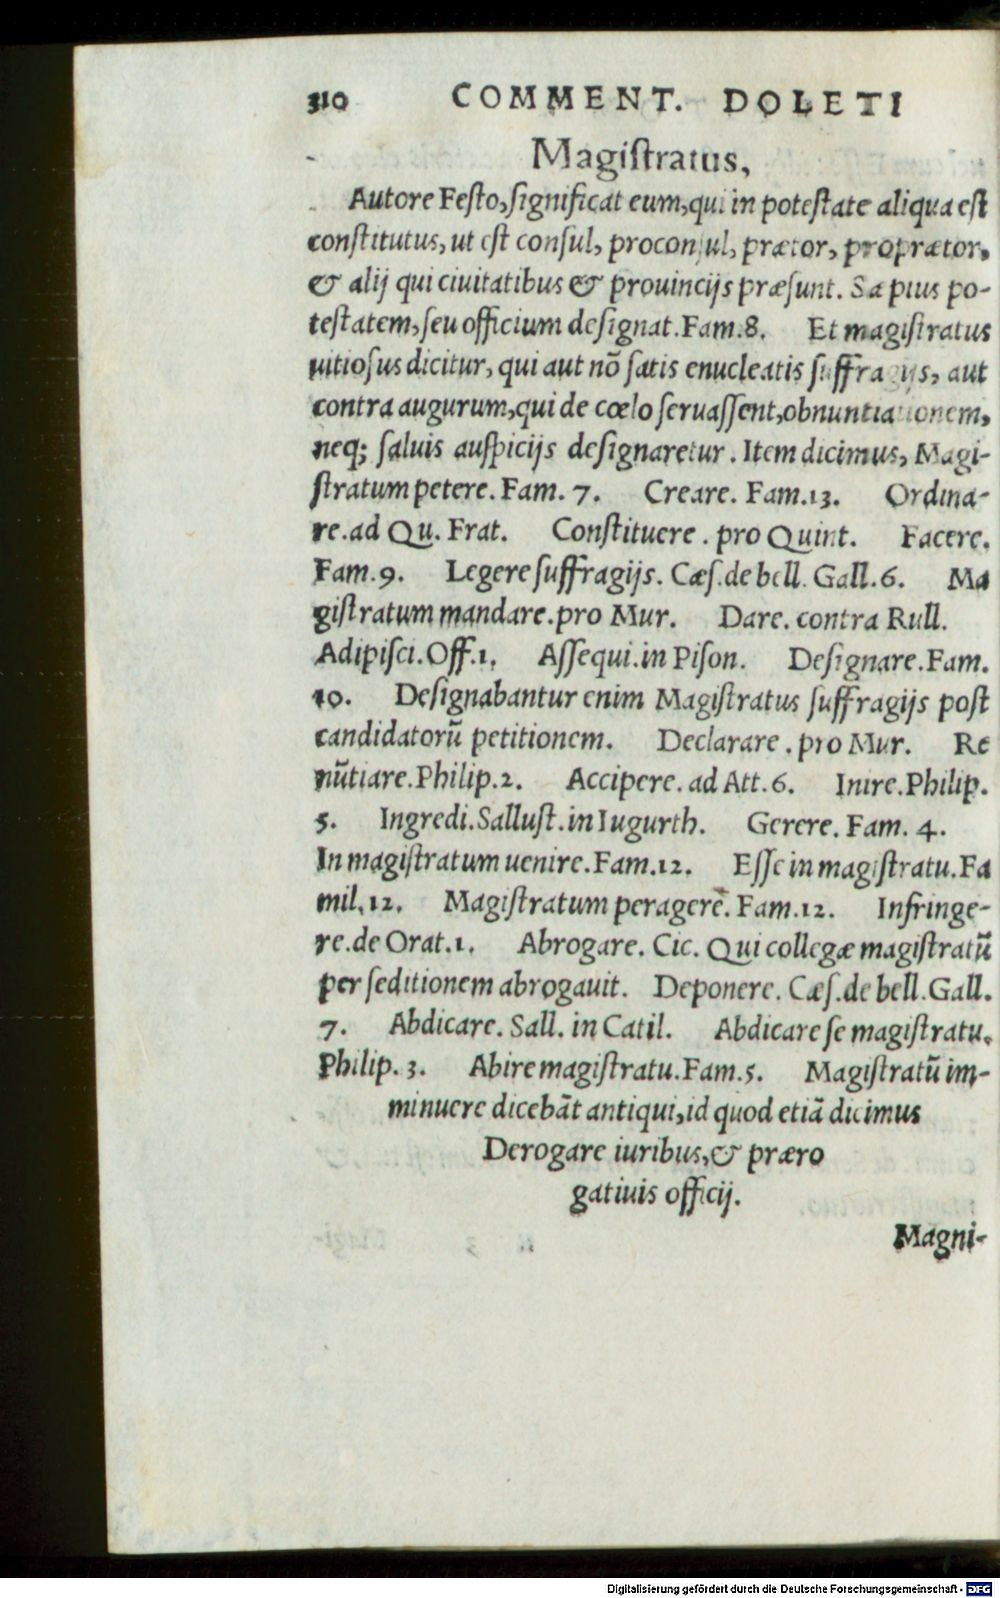 310 COMMENT. DOLETI
Magiſtratus,
Autore Feſto,ſignificat eum,qui in poteſtate aliqua eſt
conſtitutus, ut eſt conſul, proconſul, prætor, proprætor,
& alij qui ciuitatibus & prouincijs præſunt. Sæpius po-
teſtatem,ſeu officium deſignat.Fam.8. Et magiſtratus
uitioſus dicitur, qui aut nõ ſatis enucleatis ſuffragijs, aut
contra augurum,qui de cœlo ſeruaſſent,obnuntiationem,
neq; ſaluis auſpicijs deſignaretur. Item dicimus, Magi-
ſtratum petere. Fam. 7. Creare. Fam.13. Ordina-
re.ad Qu. Frat. Conſtituere. pro Quint. Facere.
Fam.9. Legere ſuffragijs. Cæſ.de bell. Gall.6. Ma
giſtratum mandare.pro Mur. Dare. contra Rull.
Adipiſci.Off.1. Aſſequi.in Piſon. Deſignare.Fam.
10. Deſignabantur enim Magiſtratus ſuffragijs poſt
candidatorũ petitionem. Declarare. pro Mur. Re
nũtiare.Philip.2. Accipere. ad Att.6. Inire.Philip.
5. Ingredi.Salluſt.in Iugurth. Gerere. Fam. 4.
In magiſtratum uenire.Fam.12. Eſſe in magiſtratu.Fa
mil.12. Magiſtratum peragere. Fam.12. Infringe-
re.de Orat.1. Abrogare. Cic. Qui collegæ magiſtratũ
per ſeditionem abrogauit. Deponere. Cæſ.de bell.Gall.
7. Abdicare. Sall. in Catil. Abdicare ſe magiſtratu.
Philip. 3. Abire magiſtratu.Fam.5. Magiſtratũ im-
minuere dicebãt antiqui,id quod etiã dicimus
Derogare iuribus,& præro
gatiuis officij.
Magni-
Digitalisierung gefördert durch die Deutsche Forschungsgemeinschaft - DFG